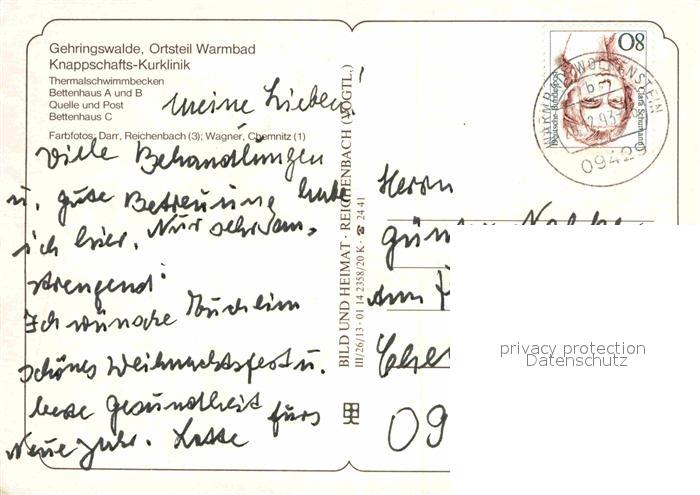 Gehringswalde, Ortsteil Warmbad
Knappschafts-Kurklinik
Thermalschwimmbecken
Bettenhaus A und B
Quelle und Post
Bettenhaus C
Farbfotos: Darr, Reichenbach (3); Wagner, Chemnitz (1)
Meine Lieben!
Viele Behandlungen
u. gute Betreuung habe
ich hier. Nur sehr an-
strengend!
Ich wünsche Euch ein
schönes Weihnachtsfest u.
beste Gesundheit fürs
Neue Jahr.
BILD UND HEIMAT · REICHENBACH (VOGTL.)
III/26/13 · 01 14 2358/20 K · ☎ 24 41
80
Deutsche Bundespost
Clara Schumann
WOLKENSTEIN
b
93
09429
Herrn
Am
09
privacy protection
Datenschutz